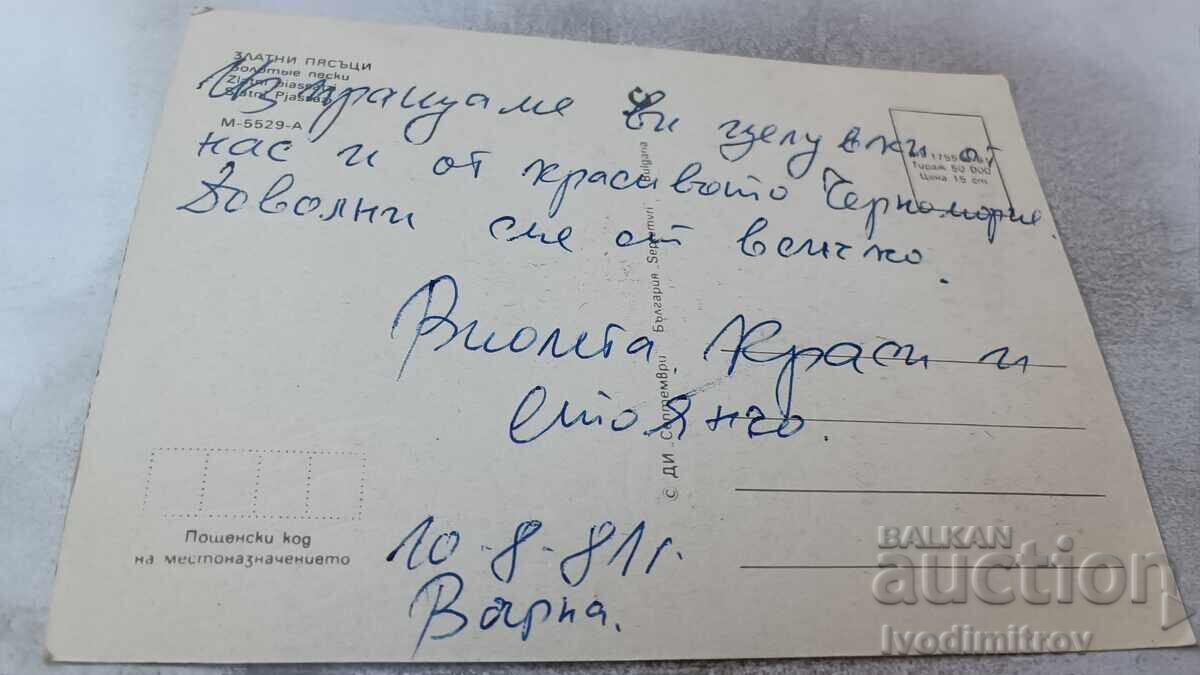 ЗЛАТНИ ПЯСЪЦИ
Золотые пески
Zlatni
Slatni Pjassazi
М-5529-А
Изпращаме ви целувки от
нас и от красивото Черноморие.
Доволни сме от всичко.
Виолета, Краси и
Стоянчо.
10-8-81г.
Варна.
Тираж 50 000
Цена 15 ст
© ДИ „Септември" България „Septemvri" Bulgaria
Пощенски код
на местоназначението
BALKAN
auction
Ivodimitrov